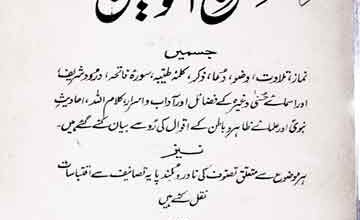 جسمیں
نماز، تلاوت، وضو، دعا، ذکر، کلمۂ طیبہ، سورۂ فاتحہ، درود شریف
اور اسمائے حسنیٰ وغیرہ کے فضائل اور آداب و اسرار، کلام اللہ، احادیث
نبوی اور علمائے ظاہر و باطن کے اقوال کی رُو سے بیان کئے گئے ہیں۔
نیز
ہر موضوع سے متعلق تصوف کی نادر و بلند پایہ تصانیف سے اقتباسات
نقل کئے ہیں